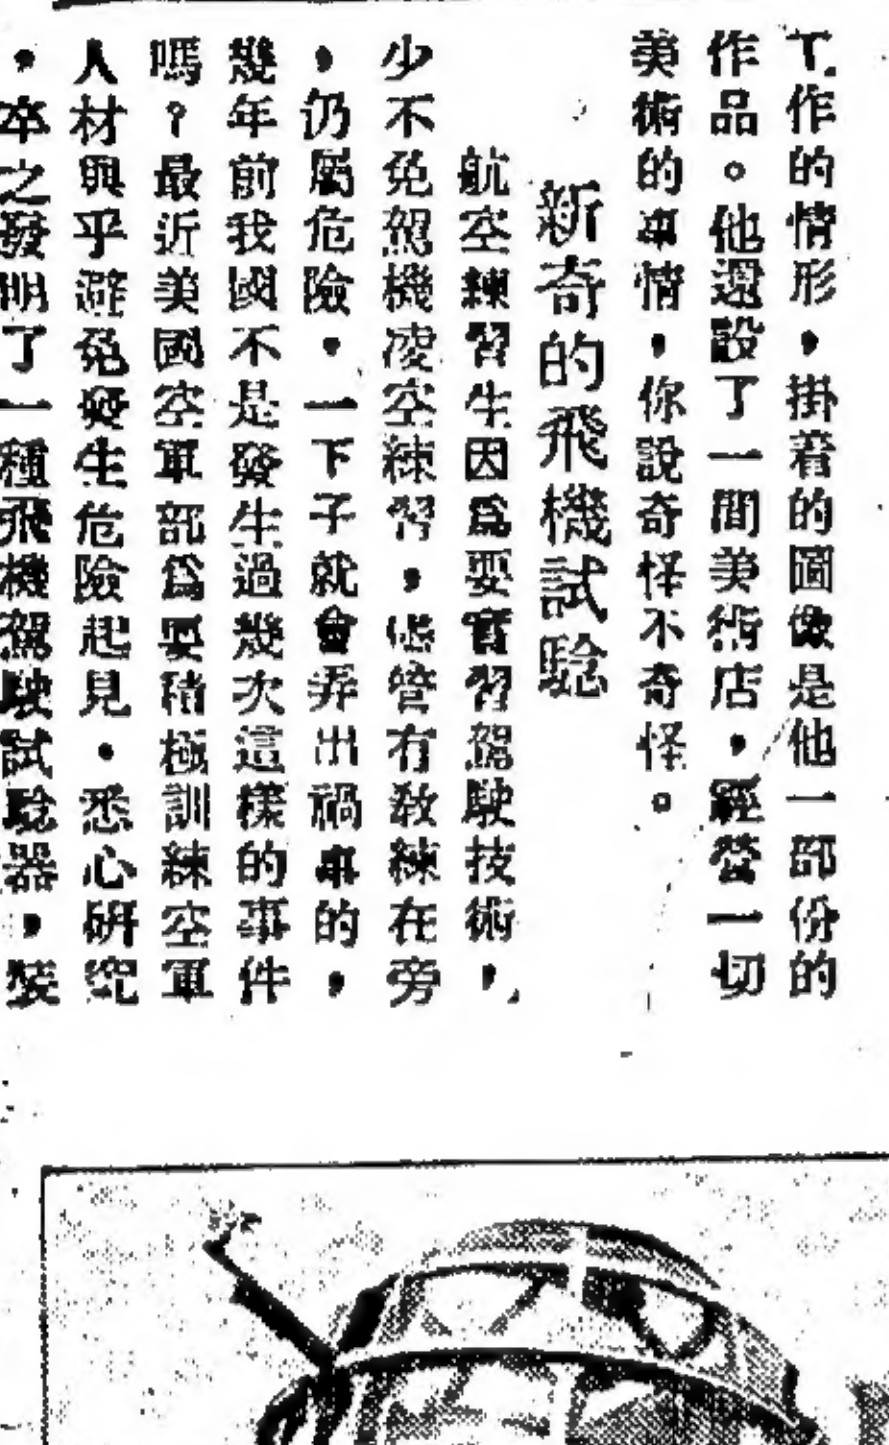 工作的情形，掛着的圖像是他一部份的
作品。他還設了一間美術店，經營一切
美術的事情，你說奇怪不奇怪。
新奇的飛機試驗
航空練習生因爲要實習駕駛技術，
少不免駕機凌空練習，儘管有敎練在旁
，仍屬危險，一下子就會弄出禍事的，
幾年前我國不是發生過幾次這樣的事件
嗎？最近美國空軍部爲要積極訓練空軍
人材與乎避免發生危險起見，悉心硏究
，卒之發明了一種飛機駕駛試驗器，裝